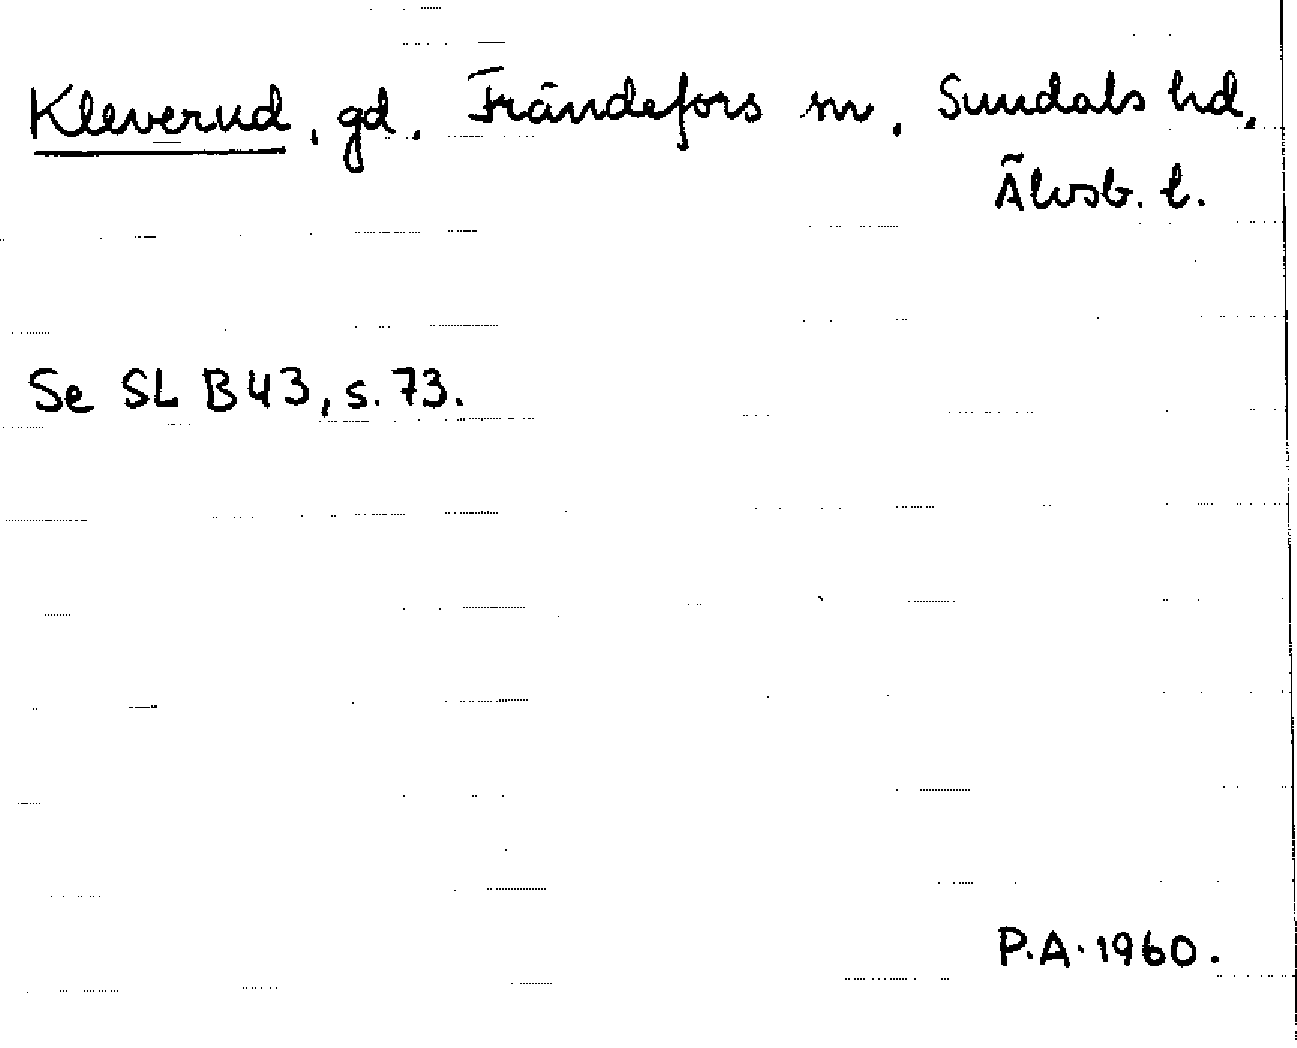 Kleverud, gd. Frändefors sn, Sundals hd,
Älvsb. l.
Se SL B43, s. 73.
P.A. 1960.